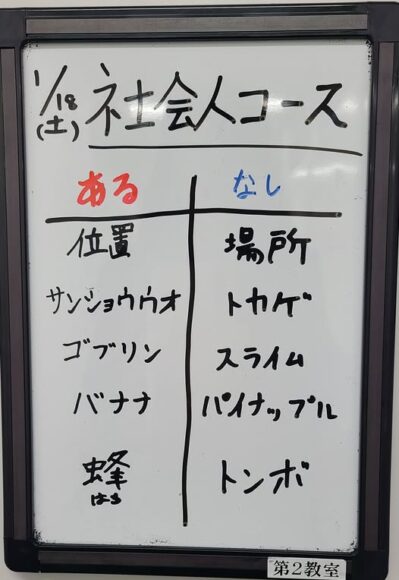 1/18(土) 社会人コース
ある なし
位置 場所
サンショウウオ トカゲ
ゴブリン スライム
バナナ パイナップル
蜂 トンボ
はち
第2教室